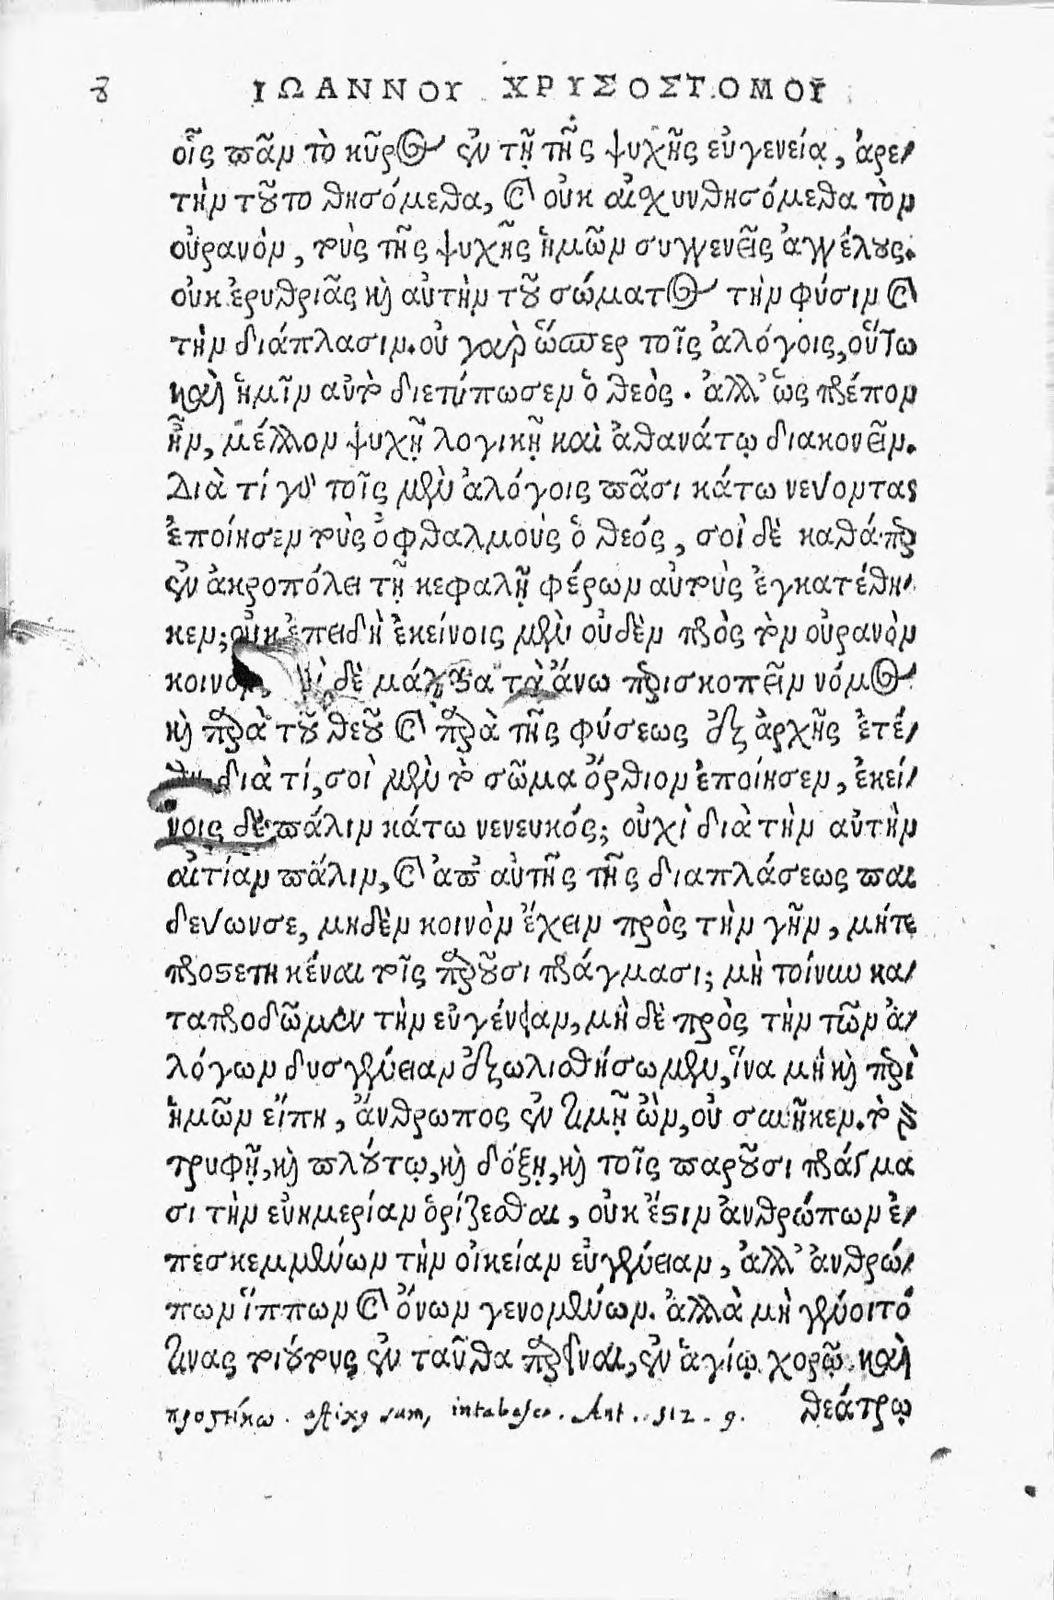 8 ΙΩΑΝΝΟΥ ΧΡΥΣΟΣΤΟΜΟΥ
οἷς πᾶν τὸ κῦρος ἐν τῇ τῆς ψυχῆς εὐγενείᾳ, ἀρε-
τὴν τοῦτο θησόμεθα, καὶ οὐκ αἰσχυνθησόμεθα τὸν
οὐρανόν, τοὺς τῆς ψυχῆς ἡμῶν συγγενεῖς ἀγγέλους.
οὐκ ἐρυθριᾷς καὶ αὐτὴν τοῦ σώματος τὴν φύσιν καὶ
τὴν διάπλασιν. οὐ γὰρ ὥσπερ τοῖς ἀλόγοις, οὕτω
καὶ ἡμῖν αὐτὸ διετύπωσεν ὁ θεὸς. ἀλλ’ ὡς πρέπον
ἦν, μέλλον ψυχῇ λογικῇ καὶ ἀθανάτῳ διακονεῖν.
Διὰ τί γὰρ τοῖς μὲν ἀλόγοις πᾶσι κάτω νεύοντας
ἐποίησεν τοὺς ὀφθαλμοὺς ὁ θεός, σοὶ δὲ καθάπερ
ἐν ἀκροπόλει τῇ κεφαλῇ φέρων αὐτοὺς ἐγκατέθη-
κεν; οὐκ ἐπειδὴ ἐκείνοις μὲν οὐδὲν πρὸς τὸν οὐρανὸν
κοινόν, δὲ μάλιστα τὰ ἄνω περισκοπεῖν νόμος
καὶ παρὰ τοῦ θεοῦ καὶ παρὰ τῆς φύσεως ἐξ ἀρχῆς ἐτέ-
θη. διὰ τί, σοὶ μὲν τὸ σῶμα ὄρθιον ἐποίησεν, ἐκεί-
νοις δὲ πάλιν κάτω νενευκός; οὐχὶ διὰ τὴν αὐτὴν
αἰτίαν πάλιν, καὶ ἀπ’ αὐτῆς τῆς διαπλάσεως παι
δεύων σε, μηδὲν κοινὸν ἔχειν πρὸς τὴν γῆν, μήτε
προστετηκέναι τοῖς παροῦσι πράγμασι; μὴ τοίνυν κα-
ταπροδῶμεν τὴν εὐγένειαν, μὴ δὲ πρὸς τὴν τῶν ἀ-
λόγων δυσγένειαν ἐξωλισθήσωμεν, ἵνα μὴ καὶ περὶ
ἡμῶν εἴπῃ, ἄνθρωπος ἐν τιμῇ ὢν, οὐ συνῆκεν. τὸ γὰρ
τρυφῇ, καὶ πλούτῳ, καὶ δόξῃ, καὶ τοῖς παροῦσι πράγμα
σι τὴν εὐημερίαν ὁρίζεσθαι, οὐκ ἔστιν ἀνθρώπων ἐ-
πεσκεμμένων τὴν οἰκείαν εὐγένειαν, ἀλλ’ ἀνθρώ-
πων ἵππων καὶ ὄνων γενομένων. ἀλλὰ μὴ γένοιτό
τινας τοιούτους ἐν ταῦθα παρεῖναι, ἐν ἁγίῳ χορῷ καὶ
θεάτρῳ
προστήκω. affixus sum, intabesco. Ant. 512. 9.